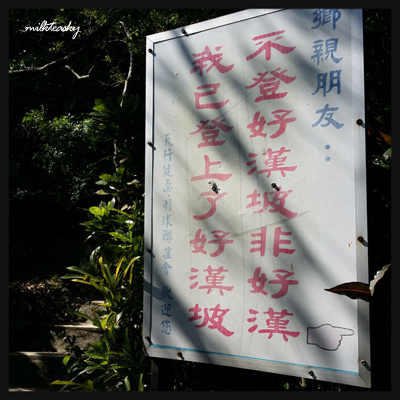 milkteasky
鄉親朋友：
不登好漢坡非好漢
我已登上了好漢坡
天行健桌羽球聯誼會 歡迎您